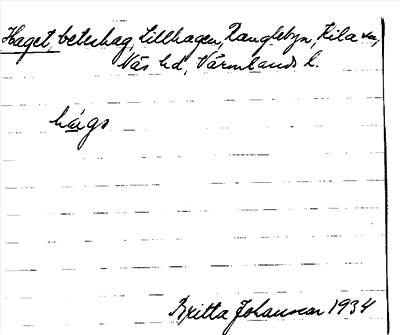 Haget, beteshag, Lillhagen, Ranglebyn, Kila sn,
Näs hd, Värmlands l.
hags
Britta Johansson 1934